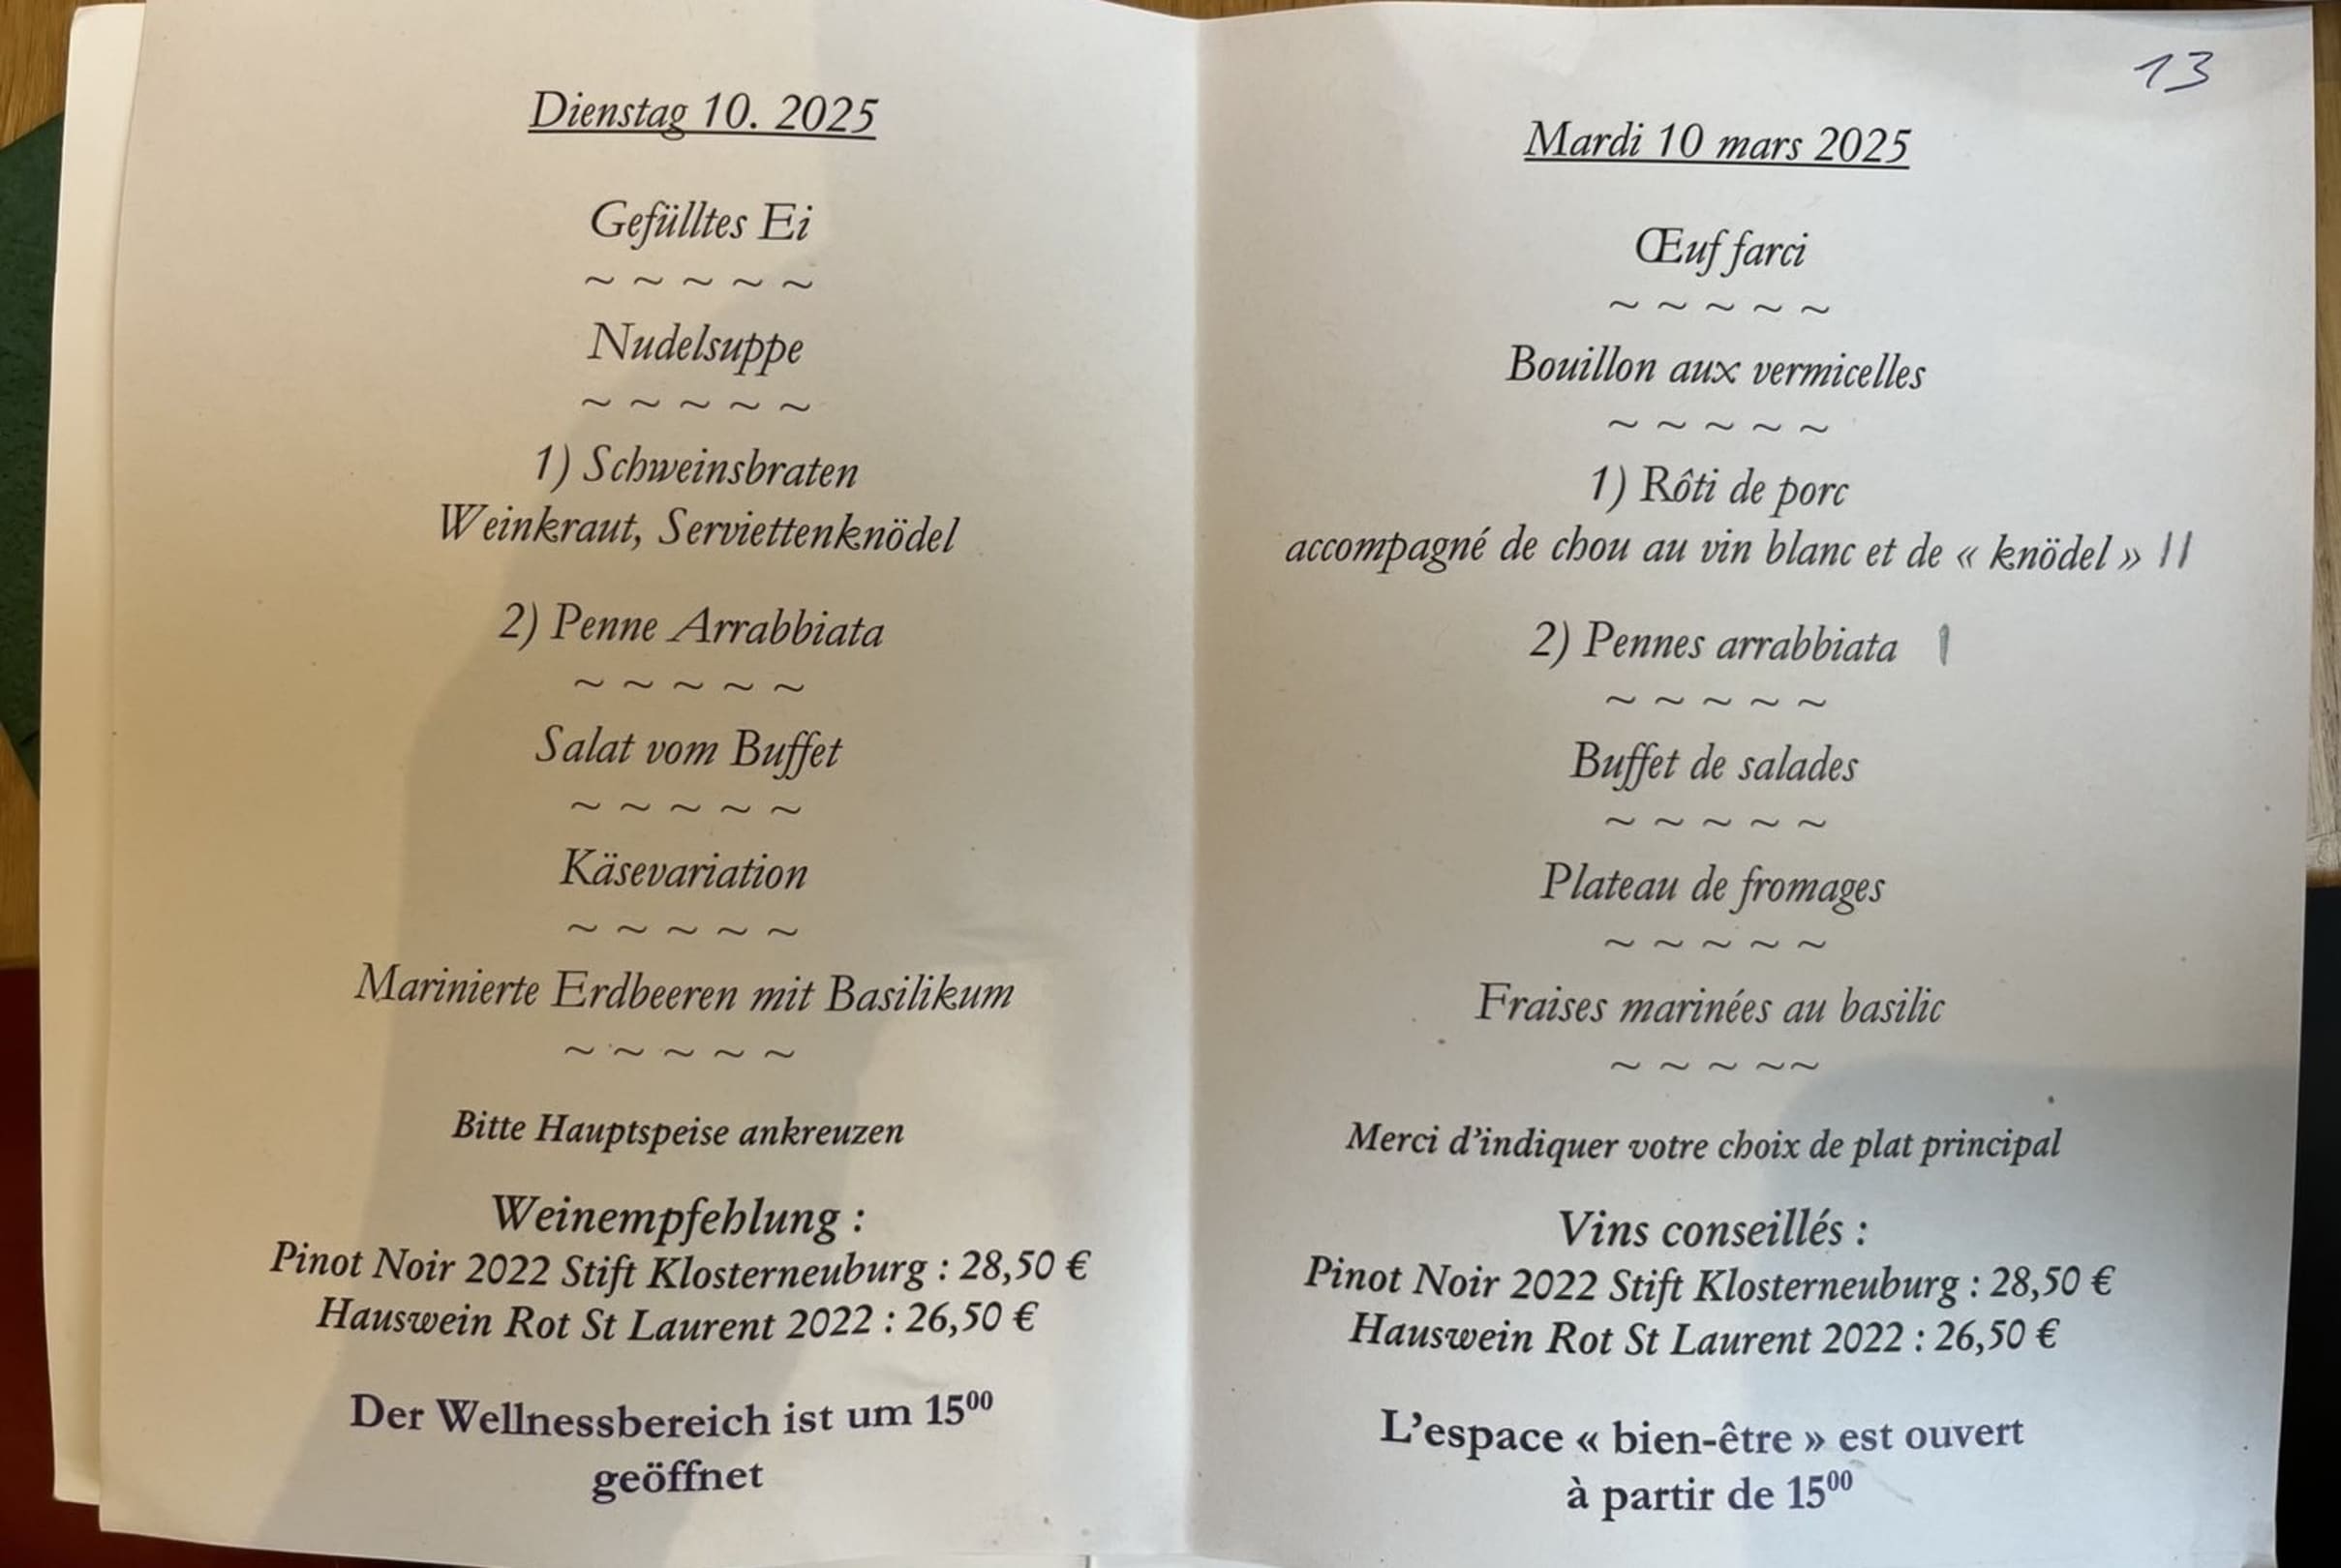 Dienstag 10. 2025
Gefülltes Ei
~ ~ ~ ~ ~
Nudelsuppe
~ ~ ~ ~ ~
1) Schweinsbraten
Weinkraut, Serviettenknödel
2) Penne Arrabbiata
~ ~ ~ ~ ~
Salat vom Buffet
~ ~ ~ ~ ~
Käsevariation
~ ~ ~ ~ ~
Marinierte Erdbeeren mit Basilikum
~ ~ ~ ~ ~
Bitte Hauptspeise ankreuzen
Weinempfehlung :
Pinot Noir 2022 Stift Klosterneuburg : 28,50 €
Hauswein Rot St Laurent 2022 : 26,50 €
Der Wellnessbereich ist um 15⁰⁰
geöffnet
13
Mardi 10 mars 2025
Œuf farci
~ ~ ~ ~ ~
Bouillon aux vermicelles
~ ~ ~ ~ ~
1) Rôti de porc
accompagné de chou au vin blanc et de « knödel » II
2) Pennes arrabbiata I
~ ~ ~ ~ ~
Buffet de salades
~ ~ ~ ~ ~
Plateau de fromages
~ ~ ~ ~ ~
Fraises marinées au basilic
~ ~ ~ ~~
Merci d'indiquer votre choix de plat principal
Vins conseillés :
Pinot Noir 2022 Stift Klosterneuburg : 28,50 €
Hauswein Rot St Laurent 2022 : 26,50 €
L'espace « bien-être » est ouvert
à partir de 15⁰⁰